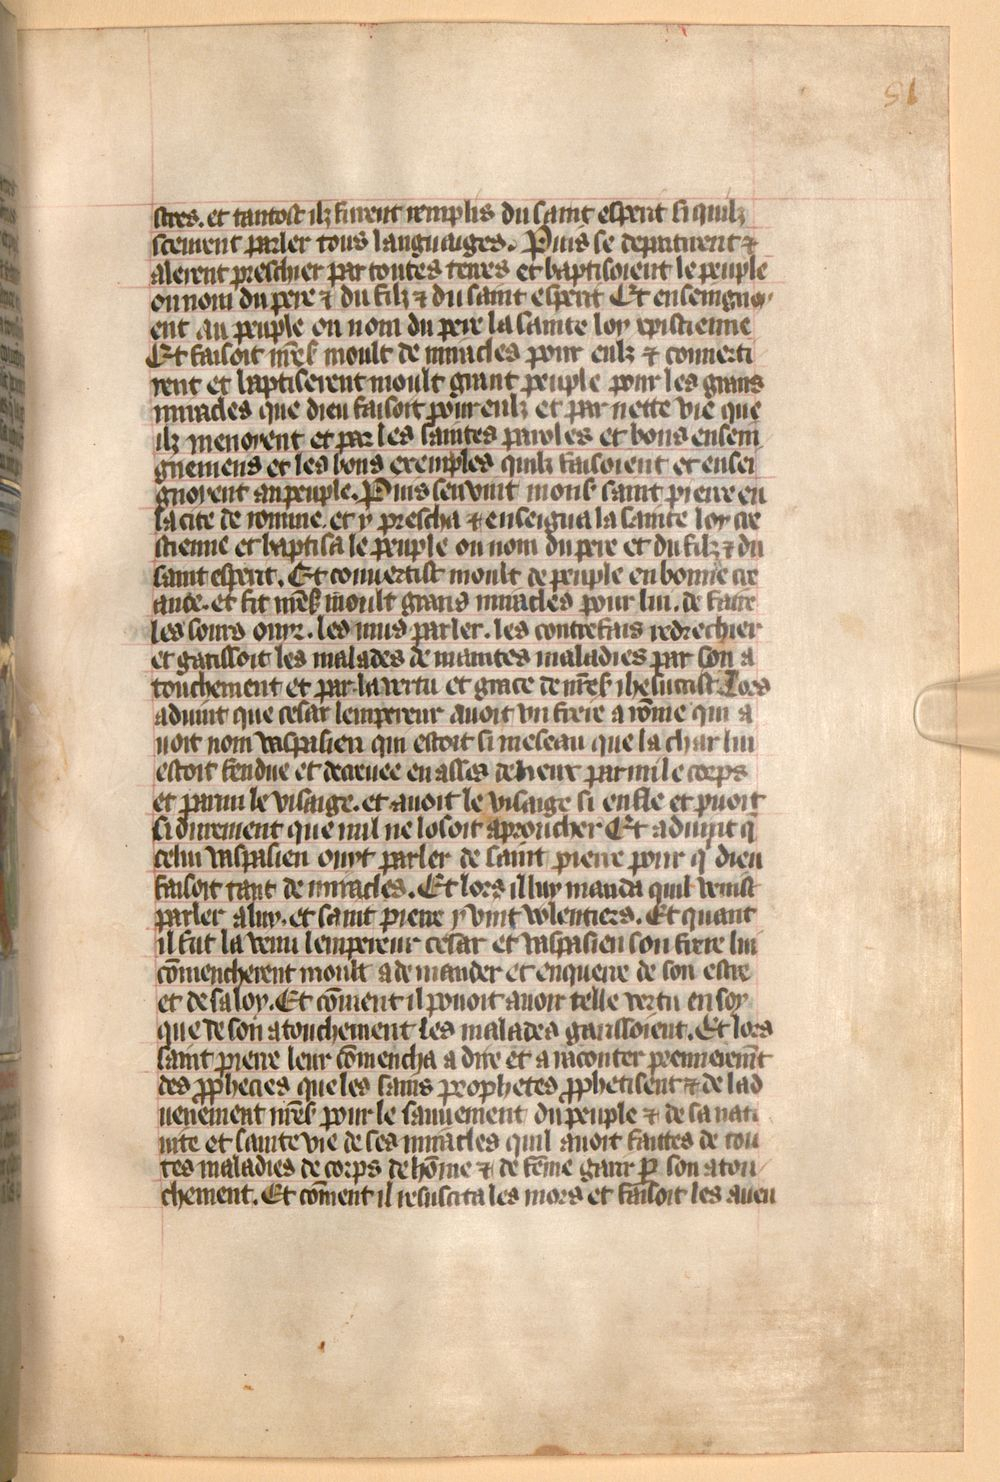 51
stres. et tantost ilz furent remplis du saint esperit si quilz
sceurent parler tous languaiges. Puis se departirent ⁊
alerent preschier par toutes terres et baptisoient le peuple
ou nom du pere ⁊ du filz ⁊ du saint esperit Et enseingnoy/
ent au peuple ou nom du pere la sainte loy xpistienne
Et faisoit nr̄e sʳ moult de miracles pour eulz ⁊ conuerti
rent et baptiserent moult grant peuple pour les grans
miracles que dieu faisoit pour eulz et par nette vie que
ilz menoyent et par les saintes paroles et bons ensein
gnemens et les bons exemples quilz faisoient et ensei
gnoyent au peuple. Puis sen vint mons̄ saint pierre en
la cite de romme. et y prescha ⁊ enseigna la sainte loy cre
stienne et baptisa le peuple ou nom du pere et du filz ⁊ du
saint esperit. Et conuertist moult de peuple en bonne cre
ance. et fit nr̄e sʳ moult grans miracles pour lui. de faire
les sours oyr. les mus parler. les contrefais redrechier
et garissoit les malades de maintes maladies par son a
touchement et par la vertu et grace de nr̄e sʳ ihesucrist Lors
aduint que cesar lempereur auoit vn frere a rōme qui a
uoit nom vaspasien qui estoit si meseau que la char lui
estoit fendue et decreuee en asses de lieux parmi le corps
et parmi le visaige. et auoit le visaige si enfle et puoit
si durement que nul ne losoit aproucher Et aduint q̄
celui vaspasien ouyt parler de saint pierre pour q̄ dieu
faisoit tant de miracles. Et lors il luy manda quil venist
parler a luy. et saint pierre y vint volentiers. Et quant
il fut la venu lempereur cesar et vaspasien son frere lui
cōmencherent moult a demander et enquerre de son estre
et de sa loy. Et cōment il pouoit auoir telle vertu en soy
que de son atouchement les malades garissoient. Et lors
saint pierre leur cōmencha a dire et a raconter premieremēt
des ꝓphecies que les sains prophetes ꝓphetisent ⁊ de lad
uenement nr̄e sʳ pour le sauuement du peuple ⁊ de sa nati
uite et sainte vie de ses miracles quil auoit faittes de tou
tes maladies de corps de hōme ⁊ de fēme garir ꝑ son atou/
chement. Et cōment il resuscita les mors et faisoit les aueu